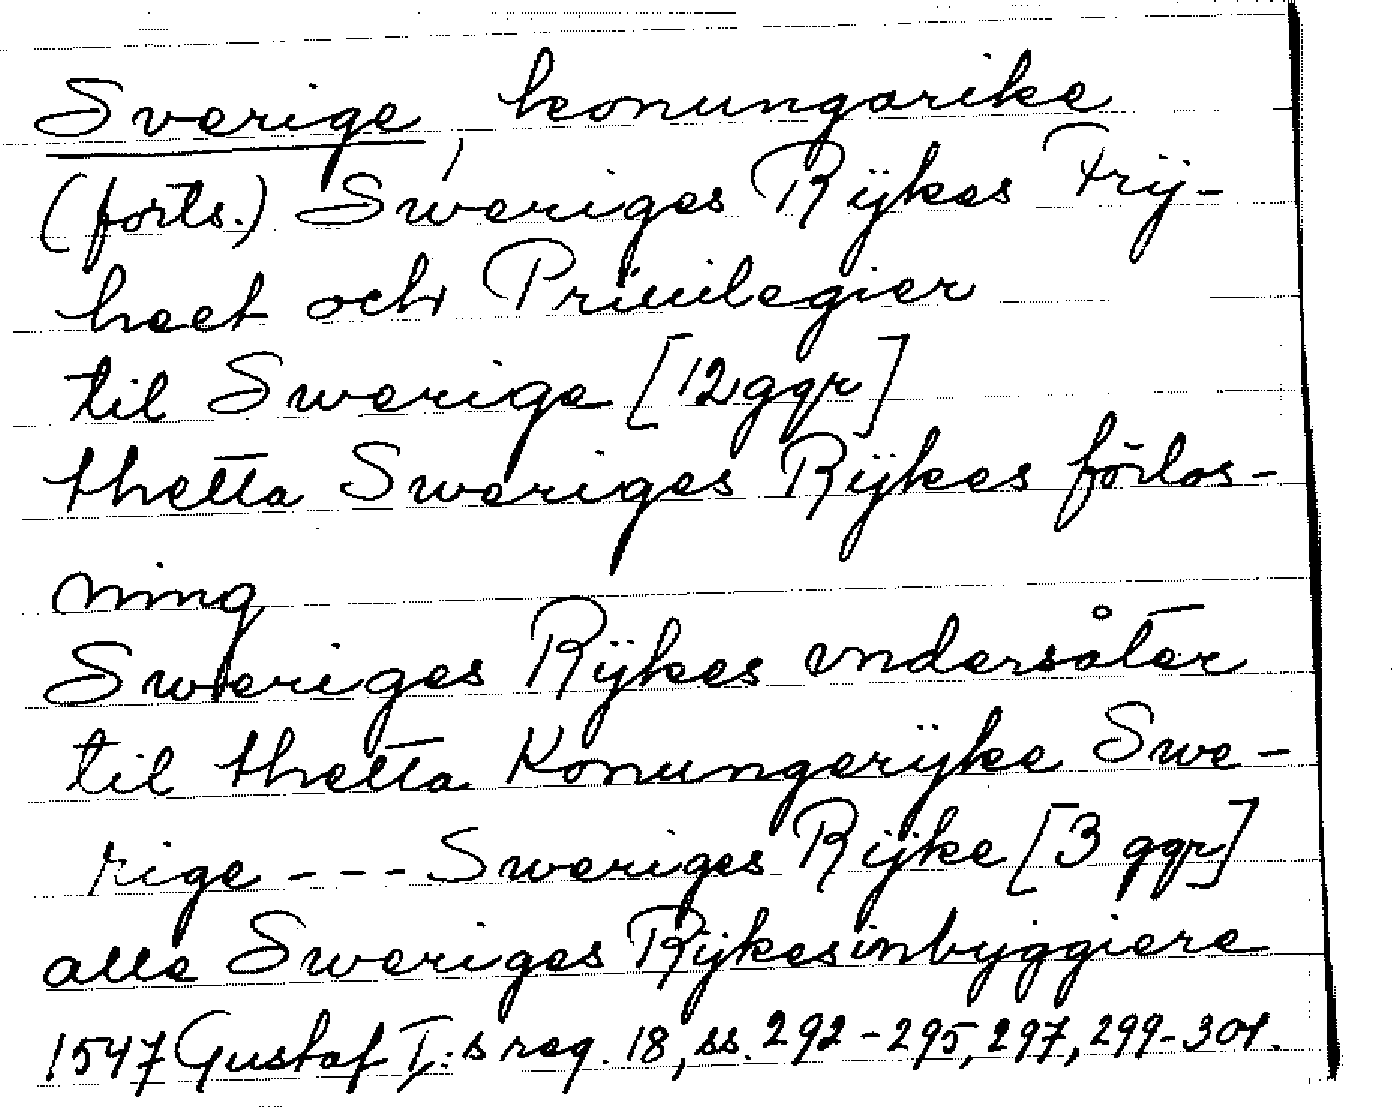 Sverige, konungarike
(forts.) Sweriges Rÿkes Frÿ-
heet och Priuilegier
til Swerige [12 ggr]
thetta Sweriges Rÿkes förlos-
ning
Sweriges Rÿkes vndersåter
til thetta Konungerÿke Swe-
rige - - - Sweriges Rÿke [3 ggr]
alle Sweriges Rÿkes inbyggiere
1547 Gustaf I:s reg. 18, ss. 292-295, 297, 299-301.